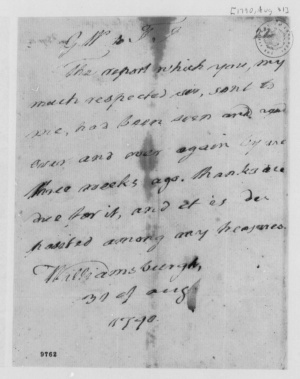 [1790, Aug. 31]
G W to T J
The report which you, my
much respected sir, sent to
me, had been seen and read
over and over again by me
three weeks ago. thanks are
due for it, and it is de
posited among my treasures.
Williamsburgh,
31 of aug
1790.
9762